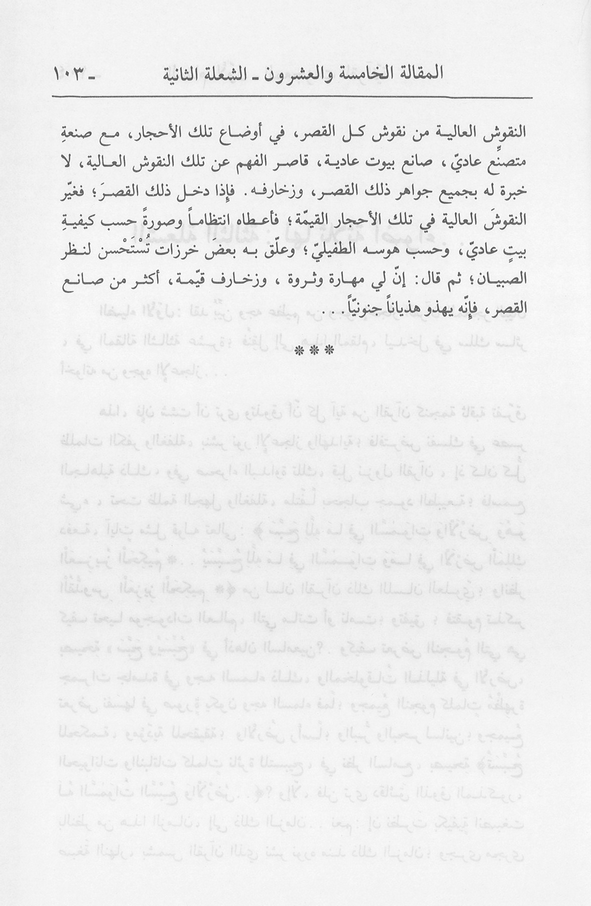 المقالة الخامسة والعشرون ـ الشعلة الثانية ـ ١٠٣
النقوش العالية من نقوش كل القصر، في أوضاع تلك الأحجار، مع صنعةِ
متصنِّع عاديّ، صانع بيوت عادية، قاصر الفهم عن تلك النقوش العالية، لا
خبرة له بجميع جواهر ذلك القصر، وزخارفه. فإذا دخل ذلك القصرَ؛ فغيّر
النقوشَ العالية في تلك الأحجار القيمّة؛ فأعطاه انتظاماً وصورةً حسب كيفيةِ
بيتٍ عاديّ، وحسب هوسه الطفيليّ؛ وعلّق به بعضَ خرزات تُسْتَحْسن لنظر
الصبيان؛ ثم قال: إنّ لي مهارة وثروة ، وزخارف قيّمة، أكثر من صانع
القصر، فإنّه يهذو هذياناً جنونيّاً...
***